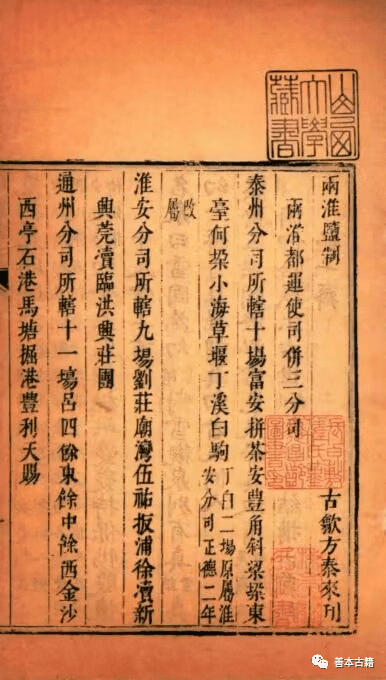 山西大學藏書
兩淮鹽制
古歙方泰來刋
兩淮都運使司併三分司
泰州分司所轄十場富安拼茶安豊角斜梁垛東
臺何垛小海草堰丁溪白駒丁白二場原屬淮
安分司正德二年
改屬
淮安分司所轄九場劉莊廟灣伍祐板浦徐瀆新
興莞瀆臨洪興莊團
通州分司所轄十一場呂四餘東餘中餘西金沙
西亭石港馬塘掘港豊利天賜
善本古籍